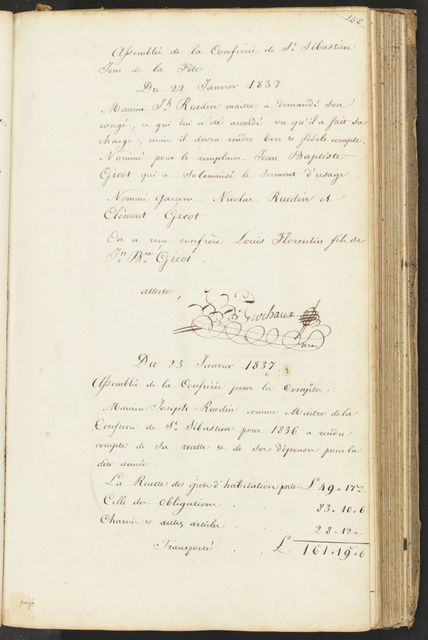 158.
Assemblée de la Confrérie de St. Sébastien
Jour de la Fête.
Du 22 Janvier 1837.
Maurice Jh. Ruedin maître a demandé son
congé, ce qui lui a été accordé vu qu'il a fait sa
charge, mais il devra rendre bon & fidèle compte.
Nommé pour le remplacer Jean Baptiste
Gicot qui a solemnisé le serment d'usage.
Nommé garçons Nicolas Ruedin et
Clément Gicot
On a reçu confrère Louis Florentin fils de
Jn. Bte. Gicot.
atteste,
Du 23 Janvier 1837.
Assemblé de la Confrérie pour les Comptes
Maurice Joseph Ruedin comme Maître de la
Confrérie de St. Sébastien pour 1836 a rendu
compte de sa recette & de ses dépenses pour la
dite année.
La Recette des d'habitation porte L 49 " 17 "
Celle des Obligations . . 83 " 10 " 6
& autres articles . . 28 " 12 "
Transporté . . L 161 " 19 " 6